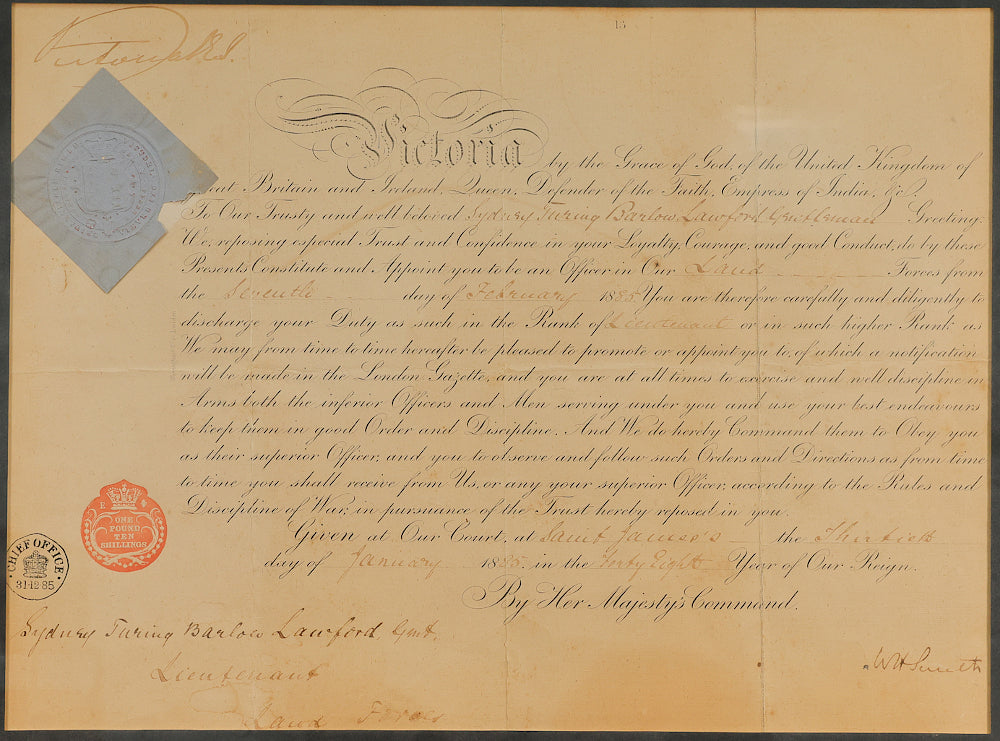 15
Victoria R I
Victoria by the Grace of God, of the United Kingdom of
Great Britain and Ireland, Queen, Defender of the Faith, Empress of India, &c.
To Our Trusty and well beloved Sydney Turing Barlow Lawford Gentleman Greeting:
We, reposing especial Trust and Confidence in your Loyalty, Courage, and good Conduct, do by these
Presents Constitute and Appoint you to be an Officer in Our Land Forces from
the Seventh day of February 1885. You are therefore carefully and diligently to
discharge your Duty as such in the Rank of Lieutenant or in such higher Rank as
We may from time to time hereafter be pleased to promote or appoint you to, of which a notification
will be made in the London Gazette, and you are at all times to exercise and well discipline in
Arms both the inferior Officers and Men serving under you and use your best endeavours
to keep them in good Order and Discipline. And We do hereby Command them to Obey you
as their superior Officer, and you to observe and follow such Orders and Directions as from time
to time you shall receive from Us, or any your superior Officer, according to the Rules and
Discipline of War, in pursuance of the Trust hereby reposed in you.
Given at Our Court, at Saint James's the Thirtieth
day of January 1885. in the Forty Eighth Year of Our Reign.
By Her Majesty's Command.
ONE
POUND
TEN
SHILLINGS
CHIEF OFFICE
31·12·85
Sydney Turing Barlow Lawford, Gent.
Lieutenant
Land Forces
WH Smith